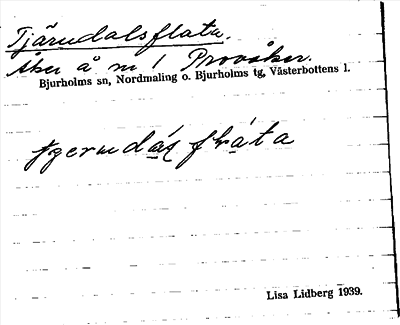 Tjärudalsflata.
Åker å m 1 Provåker.
Bjurholms sn, Nordmaling o. Bjurholms tg, Västerbottens l.
Lisa Lidberg 1939.